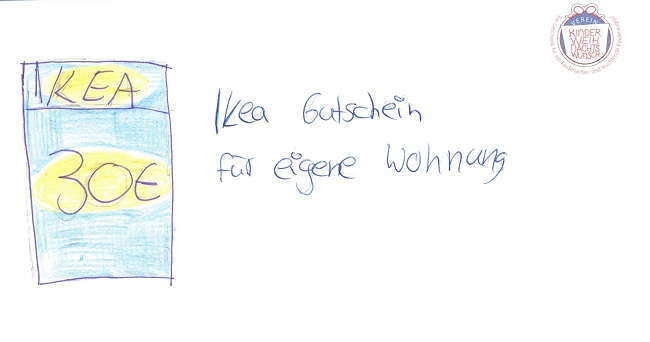 IKEA
30€
Ikea Gutschein
für eigene Wohnung
VEREIN
KINDER
WEIH
NACHTS
WUNSCH